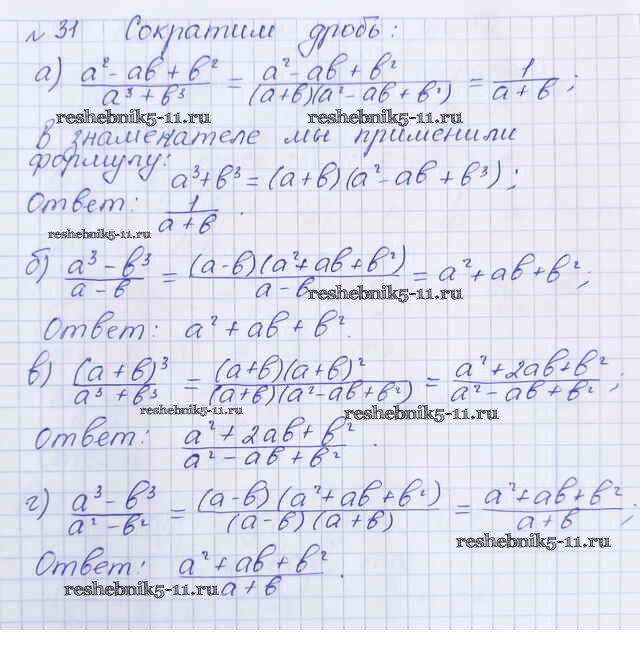 № 31 Сократим дробь:
а) (a² - ab + b²)/(a³ + b³) = (a² - ab + b²)/((a+b)(a² - ab + b²)) = 1/(a + b);
reshebnik5-11.ru reshebnik5-11.ru
В знаменателе мы применили
формулу:
a³+b³ = (a+b)(a² - ab + b³);
Ответ: 1/(a + b).
reshebnik5-11.ru
б) (a³ - b³)/(a - b) = ((a-b)(a²+ab+b²))/(a - b) = a² + ab + b²;
reshebnik5-11.ru
Ответ: a² + ab + b².
в) (a + b)³/(a³ + b³) = ((a+b)(a+b)²)/((a+b)(a²-ab+b²)) = (a² + 2ab + b²)/(a² - ab + b²);
reshebnik5-11.ru reshebnik5-11.ru
Ответ: (a² + 2ab + b²)/(a² - ab + b²).
г) (a³ - b³)/(a² - b²) = ((a-b)(a²+ab+b²))/((a-b)(a+b)) = (a²+ab+b²)/(a+b);
reshebnik5-11.ru
Ответ: (a² + ab + b²)/(a + b).
reshebnik5-11.ru